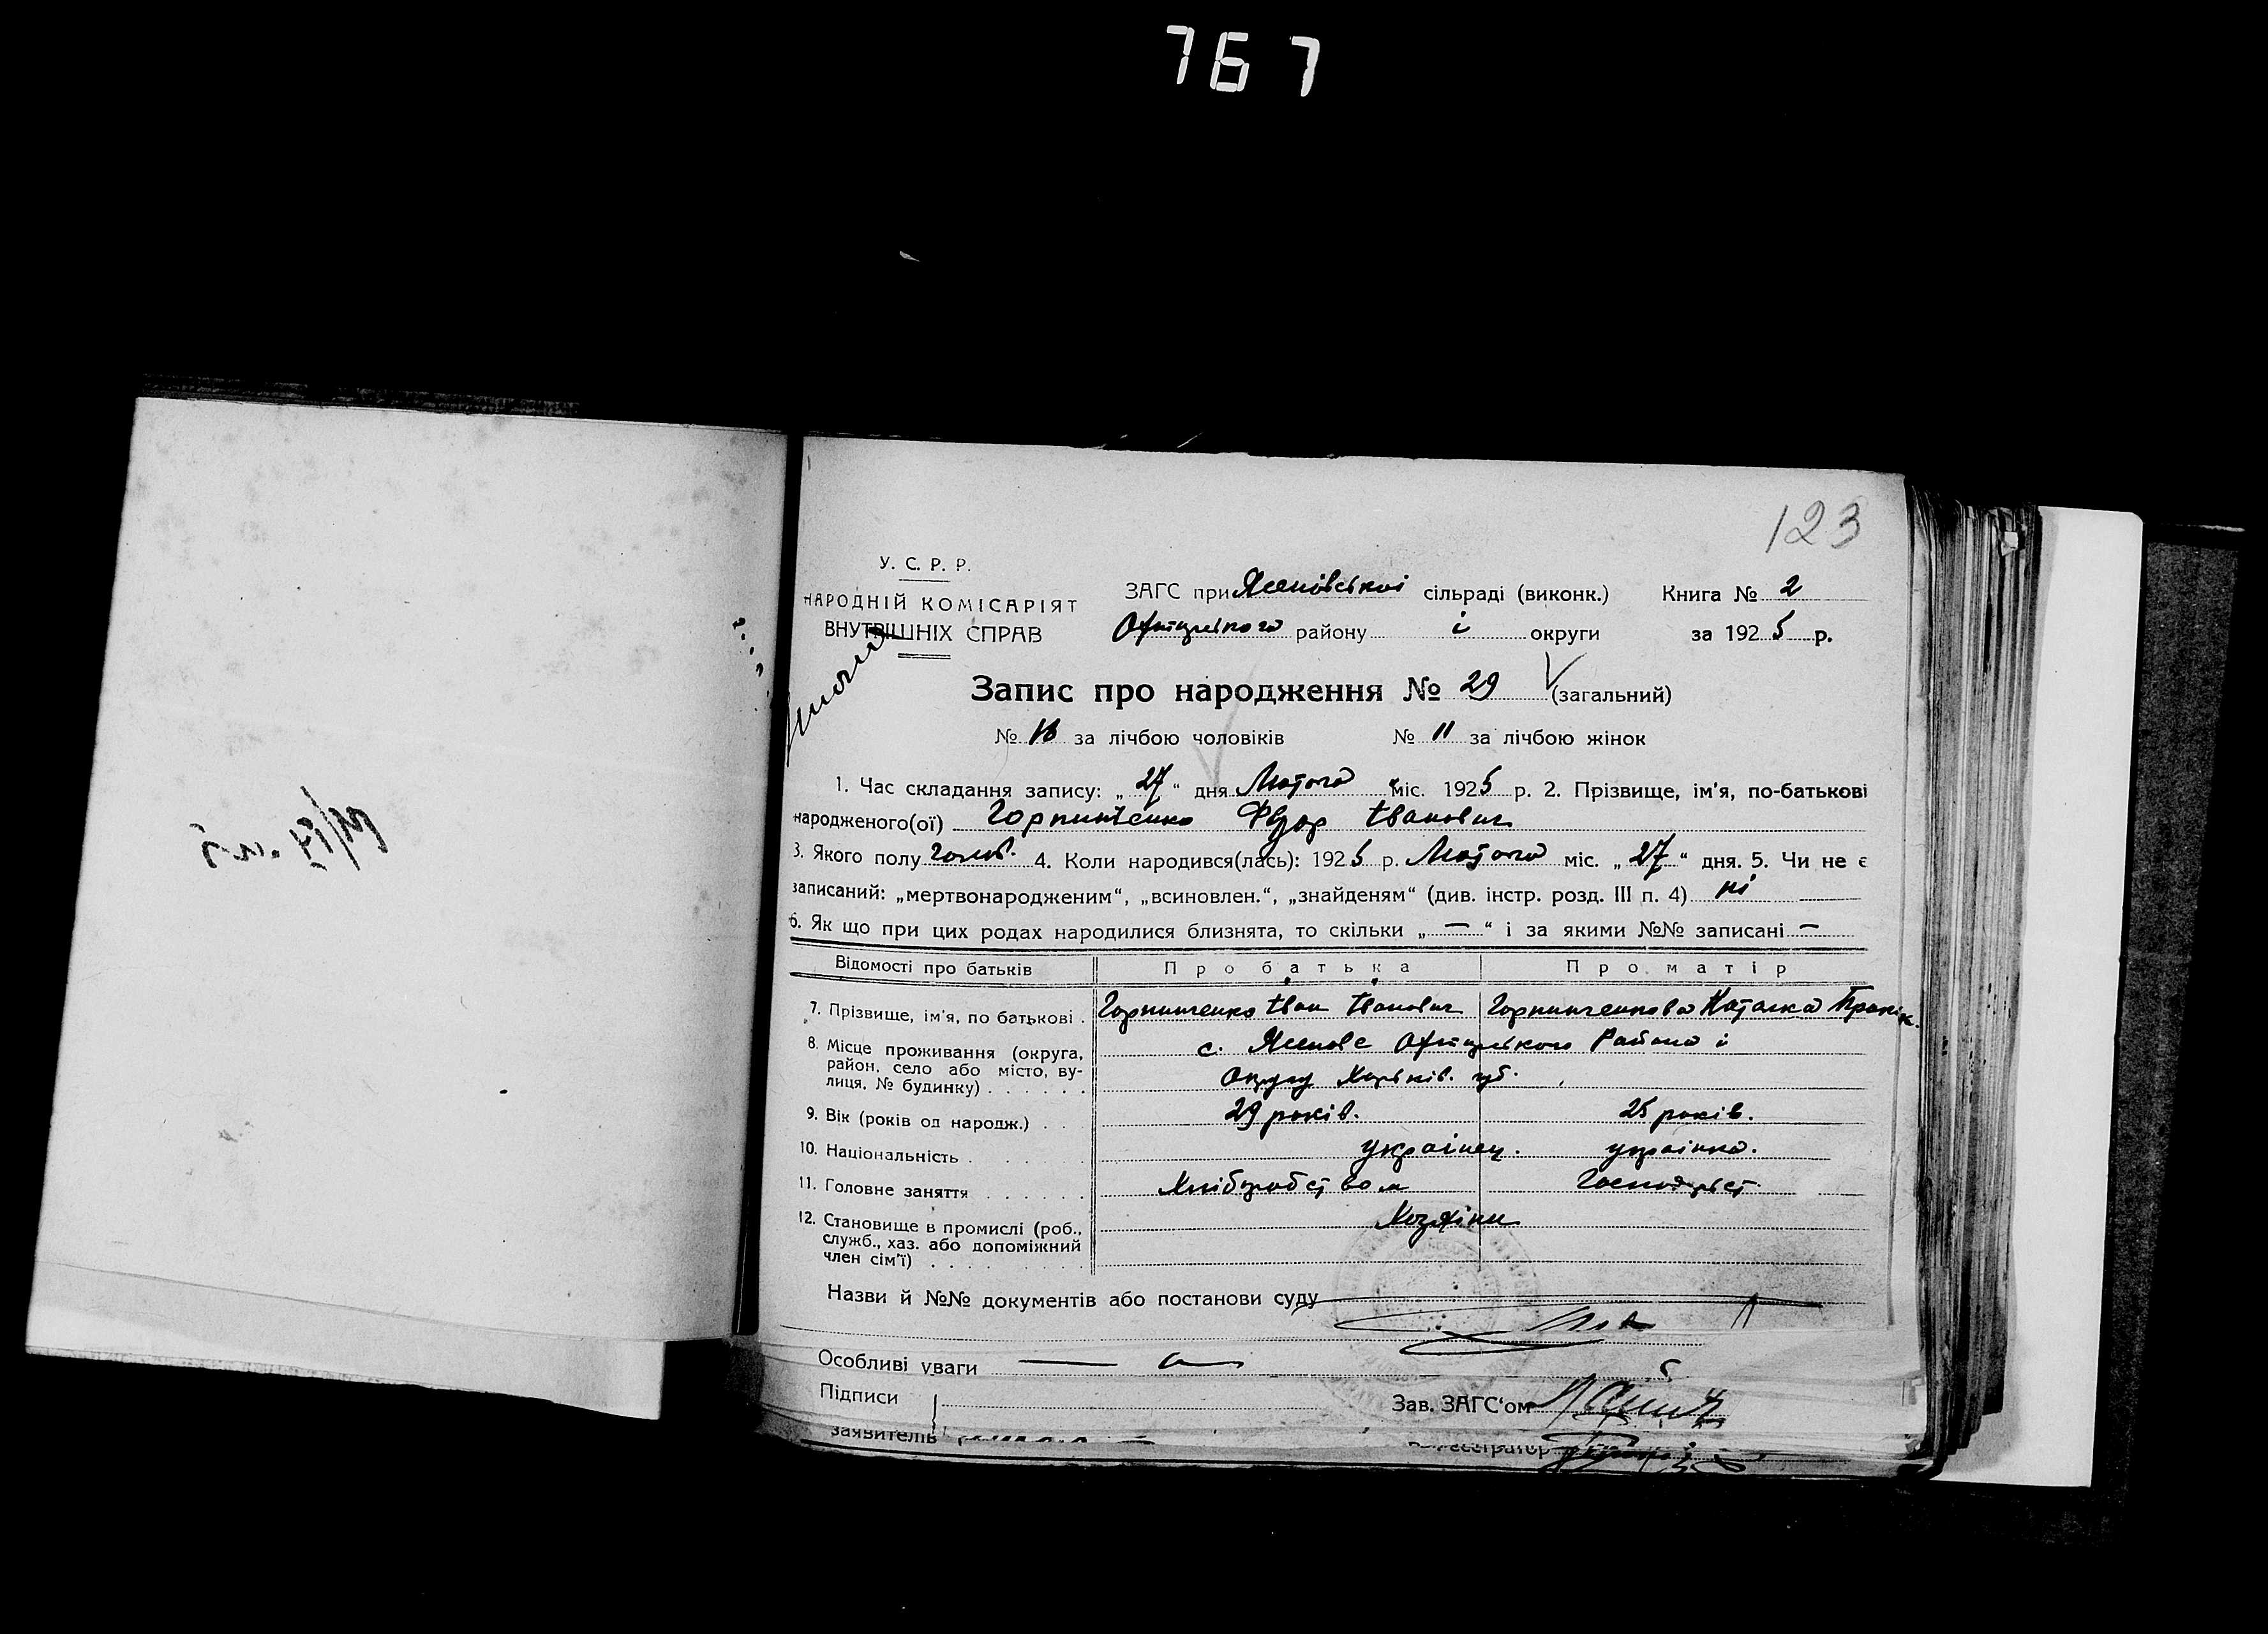 767
123
У. С. Р. Р.
НАРОДНІЙ КОМІСАРІЯТ
ВНУТРІШНІХ СПРАВ
ЗАГС при Ясеновської сільраді (виконк.) Книга № 2
Охтирського району і округи за 1925 р.
Запис про народження № 29 (загальний)
№ 18 за лічбою чоловіків № 11 за лічбою жінок
1. Час складання запису: „27“ дня Лютого міс. 1925 р. 2. Прізвище, ім'я, по-батькові
народженого(ої) Горпинченко Федор Іванович
3. Якого полу чолов. 4. Коли народився(лась): 1925 р. Лютого міс. „27“ дня. 5. Чи не є
записаний: „мертвонародженим“, „всиновлен.“, „знайденям“ (див. інстр. розд. III п. 4) ні
6. Як що при цих родах народилися близнята, то скільки „—“ і за якими №№ записані —
Відомості про батьків Про батька Про матір
7. Прізвище, ім'я, по батькові . Горпинченко Іван Іванович Горпинченкова Наталка
8. Місце проживання (округа, район, село або місто, вулиця, № будинку) . . . . . . с. Ясенове Охтирського Району і
Округу Харьків. губ.
9. Вік (років од народж.) . . 29 років. 25 років.
10. Національність . українец. українка.
11. Головне заняття . . . . . . Хліборобством Господарст
12. Становище в промислі (роб., служб., хаз. або допоміжний член сім'ї) . . . . Хозяіни
Назви й №№ документів або постанови суду
Особливі уваги —
Підписи
Зав. ЗАГС'ом
заявителів
Реєстратор